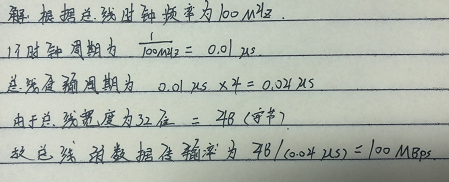 解 根据总线时钟频率为100MHz.
1个时钟周期为 1/100MHz = 0.01 μs.
总线传输周期为 0.01 μs ×4 = 0.04 μs
由于总线宽度为32位 = 4B (字节)
故总线的数据传输率为 4B/(0.04 μs) = 100 MBps.